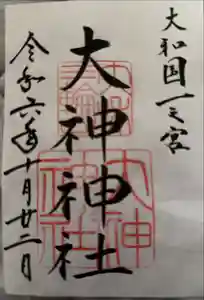 大和国一之宮
大神神社
令和六年十月廿二日
三輪
明神
大神
神社